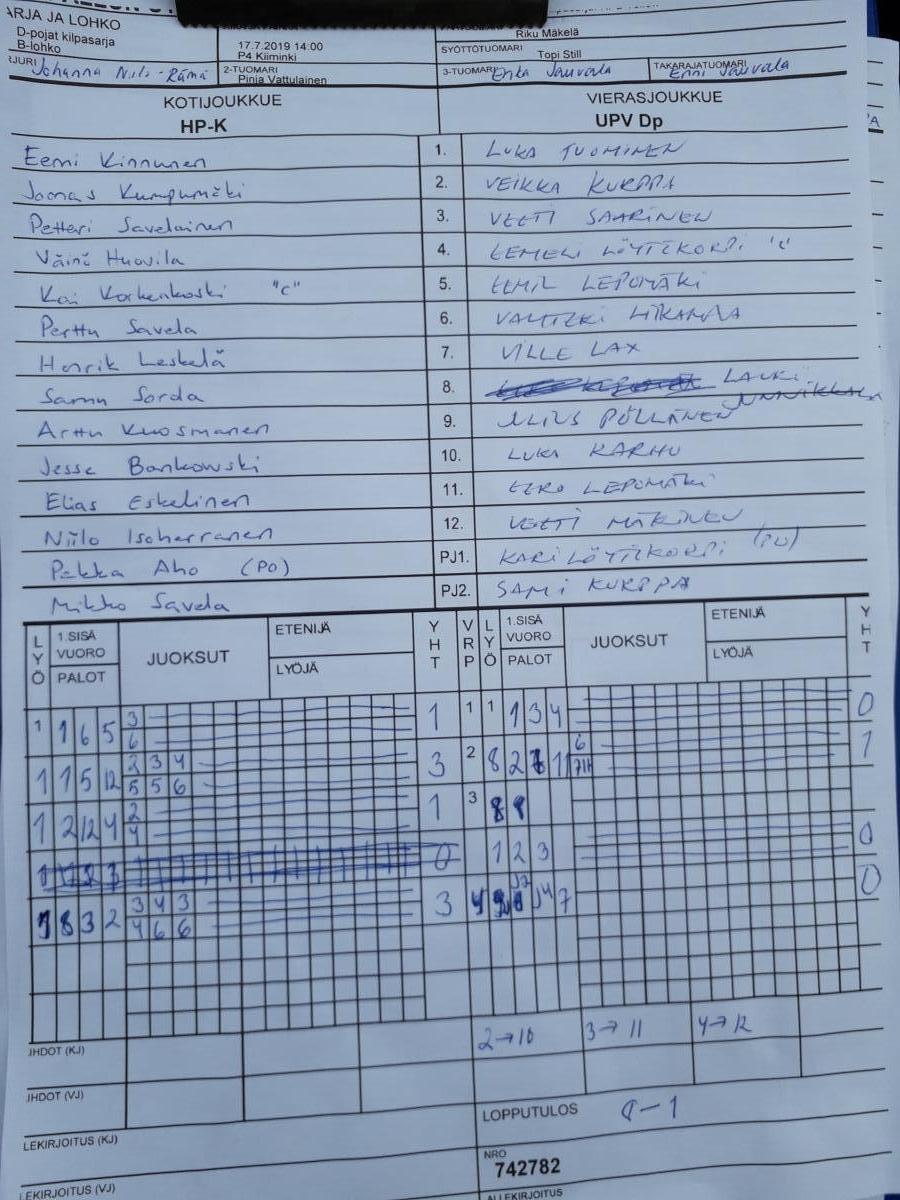 ARJA JA LOHKO
D-pojat kilpasarja
B-lohko
17.7.2019 14:00
P4 Kiiminki
Riku Mäkelä
SYÖTTÖTUOMARI
Topi Still
RJURI Johanna Nils-Rämä
2-TUOMARI
Pinja Vattulainen
3-TUOMARI Erika Jauvala
TAKARAJATUOMARI
Enni Jauvala
KOTIJOUKKUE VIERASJOUKKUE
HP-K UPV Dp
Eemi Kinnunen 1. LUKA TUOMINEN
Joonas Kumpumäki 2. VEIKKA KURPPA
Petteri Savelainen 3. VEETI SAARINEN
Väinö Huovila 4. EEMELI LÖYTTIKORPI "C"
Kai Korkeakoski "C" 5. EEMIL LEPOMÄKI
Perttu Savela 6.
Henrik Leskelä 7. VILLE LAX
Samu Sorda 8. LAURI JUNNIKKALA
Arttu Kuosmanen 9. JULIUS PÖLLÄNEN
Jesse Bankowski 10. LUKA KARHU
Elias Eskelinen 11. EERO LEPOMÄKI
Niilo Isoherranen 12. VEETI MÄKINEN
Pekka Aho (PO) PJ1. KARI LÖYTTIKORPI (PO)
Mikko Savela PJ2. SAMI KURPPA
LYÖ 1.SISÄ VUORO PALOT JUOKSUT ETENIJÄ LYÖJÄ YHT VRP LYÖ 1.SISÄ VUORO PALOT JUOKSUT ETENIJÄ LYÖJÄ YHT
1 1 6 5 3 6 1 1 1 1 3 4 0
1 1 5 12 2 3 4 5 5 6 3 2 8 2 11 6 1
1 2 12 4 2 4 1 3
0 1 2 3 0
8 3 2 3 4 3 4 6 6 3 7 0
2→10 3→11 4→12
IHDOT (KJ)
IHDOT (VJ)
LOPPUTULOS
LEKIRJOITUS (KJ)
NRO
742782
LEKIRJOITUS (VJ)
ALLEKIRJOITUS